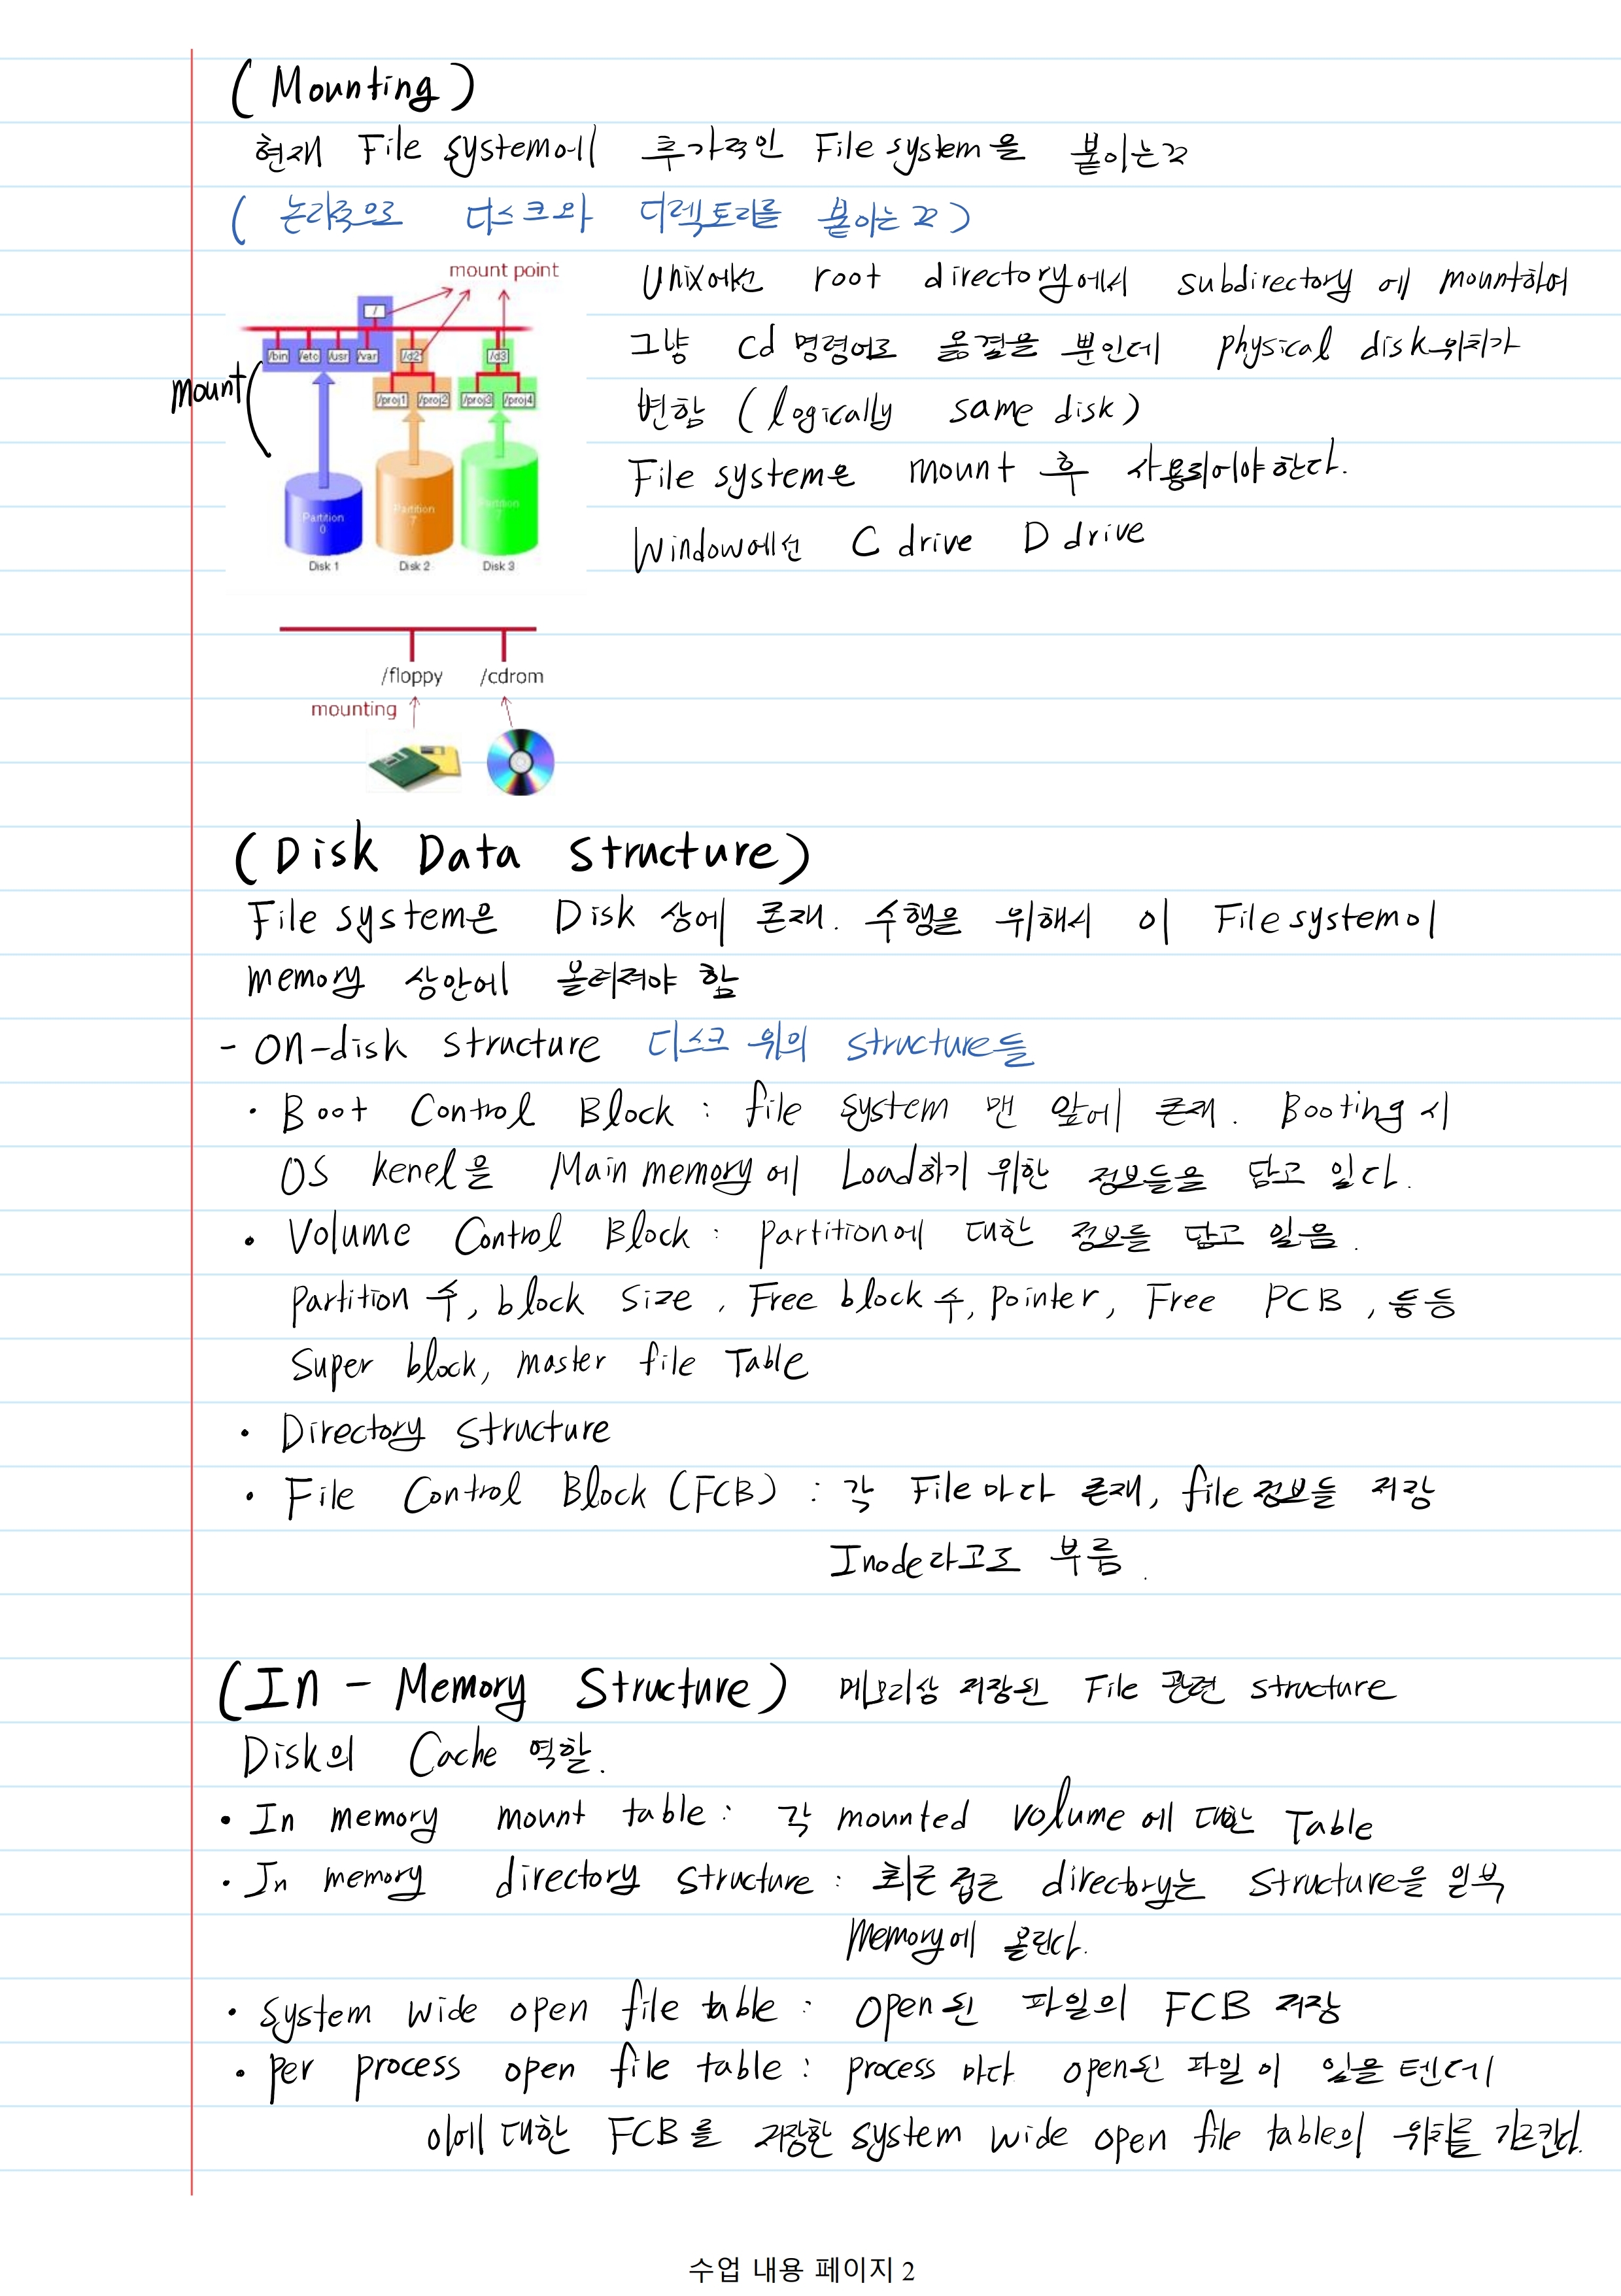 (Mounting)
현재 File system에 추가적인 File system을 붙이는 것
(논리적으로 디스크와 디렉토리를 붙이는 것)
mount point
/
/bin /etc /usr /var /d2 /d3
/proj1 /proj2 /proj3 /proj4
mount
Partition 0
Partition 7
Partition 7
Disk 1 Disk 2 Disk 3
Unix에선 root directory에서 subdirectory에 mount하여
그냥 cd 명령어로 옮겼을 뿐인데 physical disk위치가
변함 (logically same disk)
File system은 mount 후 사용되어야한다.
Window에선 C drive D drive
/floppy /cdrom
mounting
(Disk Data Structure)
File system은 Disk 상에 존재. 수행을 위해서 이 File system이
memory 상안에 올려져야 함
- On-disk structure 디스크 위의 structure들
· Boot Control Block : file system 맨 앞에 존재. Booting시
OS kenel을 Main memory에 Load하기 위한 정보들을 담고 있다.
· Volume Control Block : partition에 대한 정보를 담고 있음.
partition 수, block size, Free block 수, pointer, Free PCB, 등등
Super block, master file Table
· Directory structure
· File Control Block (FCB) : 각 File마다 존재, file정보들 저장
Inode라고도 부름.
(In - Memory Structure) 메모리상 저장된 File 관련 structure
Disk의 Cache 역할.
· In memory mount table : 각 mounted volume에 대한 Table
· In memory directory structure : 최근 접근 directory는 structure을 일부
Memory에 올린다.
· System wide open file table : open된 파일의 FCB 저장
· per process open file table : process 마다 open된 파일이 있을 텐데
이에 대한 FCB를 저장한 system wide open file table의 위치를 가르킨다.
수업 내용 페이지 2